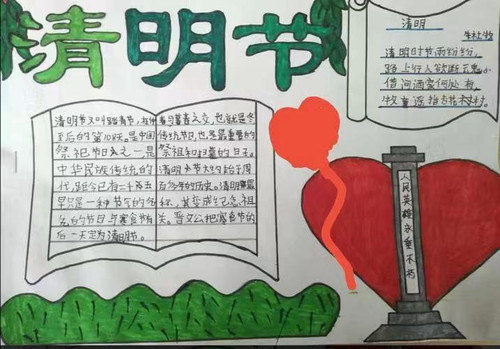 清明节
清明
杜牧
清明时节雨纷纷，
路上行人欲断魂。
借问酒家何处有，
牧童遥指杏花村。
清明节又叫踏青节，在仲春与暮春之交，也就是冬
至后的第108天。是中国传统节日，也是最重要的
祭祀节日之一是祭祖和扫墓的日子。
中华民族传统的清明节大约始于周
代，距今已有二千五百多年的历史。清明最
早只是一种节气的名称，其变成纪念祖
先的节日与寒食节有关。晋文公把寒食节的
后一天定为清明节。
人民英雄永垂不朽